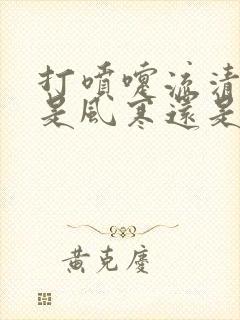 打噴嚏流清
是風寒還是
黃克慶